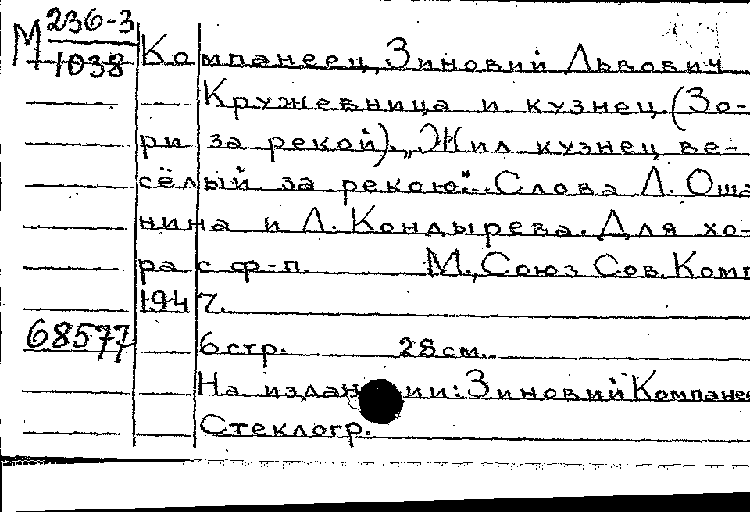 М 236-3
1038
Компанеец, Зиновий Львович
Кружевница и кузнец. (Зо-
ри за рекой). „Жил кузнец ве-
сёлый за рекою". Слова Л. Оша
нина и Л. Кондырева. Для хо-
ра с ф-п. М., Союз Сов. Комп
1947.
68577
6 стр. 28 см.
На издании: Зиновий Компанее
Стеклогр.